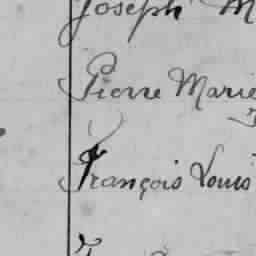 Joseph M
Pierre Marie
François Louis